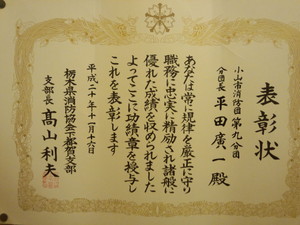 表彰状
小山市消防団第九分団
分団長 平田廣一殿
あなたは常に規律を厳正に守り
職務に忠実に精励され諸般に
優れた成績を収められました
よってここに功績章を授与し
これを表彰します
平成二十年十一月十六日
栃木県消防協会下都賀支部
支部長 髙山利夫